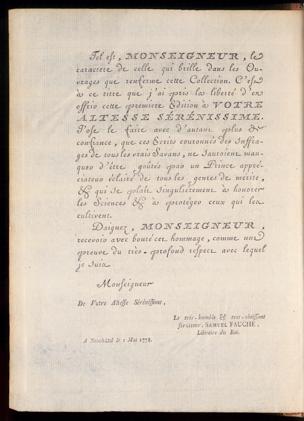 Tel est, MONSEIGNEUR, le
caractere de celle qui brille dans les Ou-
vrages que renferme cette Collection. C'est
à ce titre que j'ai pris la liberté d'en
offrir cette premiere Edition à VOTRE
ALTESSE SÉRÉNISSIME.
J'ose le faire avec d'autant plus de
confiance, que ces Ecrits couronnés des suffra-
ges de tous les vrais Savans, ne sauroient man-
quer d'être goûtés par un Prince appré-
ciateur éclairé de tous les genres de mérite,
& qui se plait singuliérement à honorer
les Sciences & à protéger ceux qui les
cultivent.
Daignez, MONSEIGNEUR,
recevoir avec bonté cet hommage, comme une
preuve du très-profond respect avec lequel
je suis
Monseigneur
De Votre Altesse Sérénissime,
Le très-humble & très-obéissant
serviteur, SAMUEL FAUCHE,
Libraire du Roi.
A Neuchâtel le 1 Mai 1778.